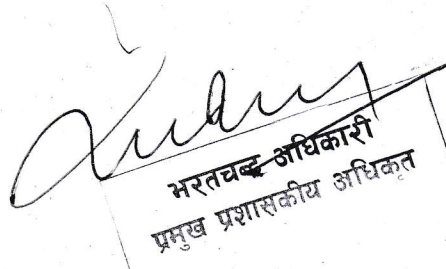 भरतचन्द्र अधिकारी
प्रमुख प्रशासकीय अधिकृत